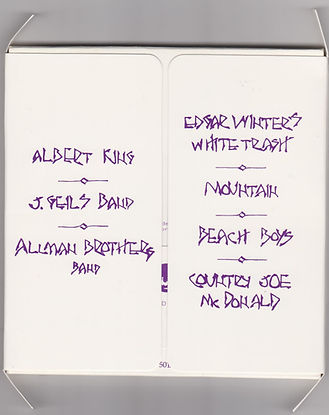 ALBERT KING
J. GEILS BAND
ALLMAN BROTHERS
BAND
EDGAR WINTER'S
WHITE TRASH
MOUNTAIN
BEACH BOYS
COUNTRY JOE
McDONALD